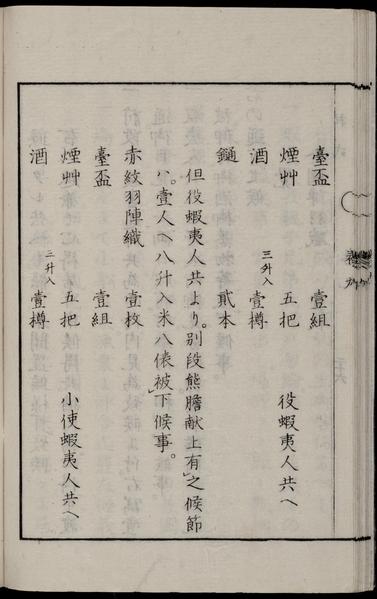 臺盃　壹組
煙艸　五把　役蝦夷人共へ
酒　三升入　壹樽
鎚　貳本
但役蝦夷人共より。別段熊膽献上有之候節
ハ。壹人へ八升入米八俵被下候事。
赤紋羽陣織　壹枚
臺盃　壹組
煙艸　五把　小使蝦夷人共へ
酒　二升入　壹樽